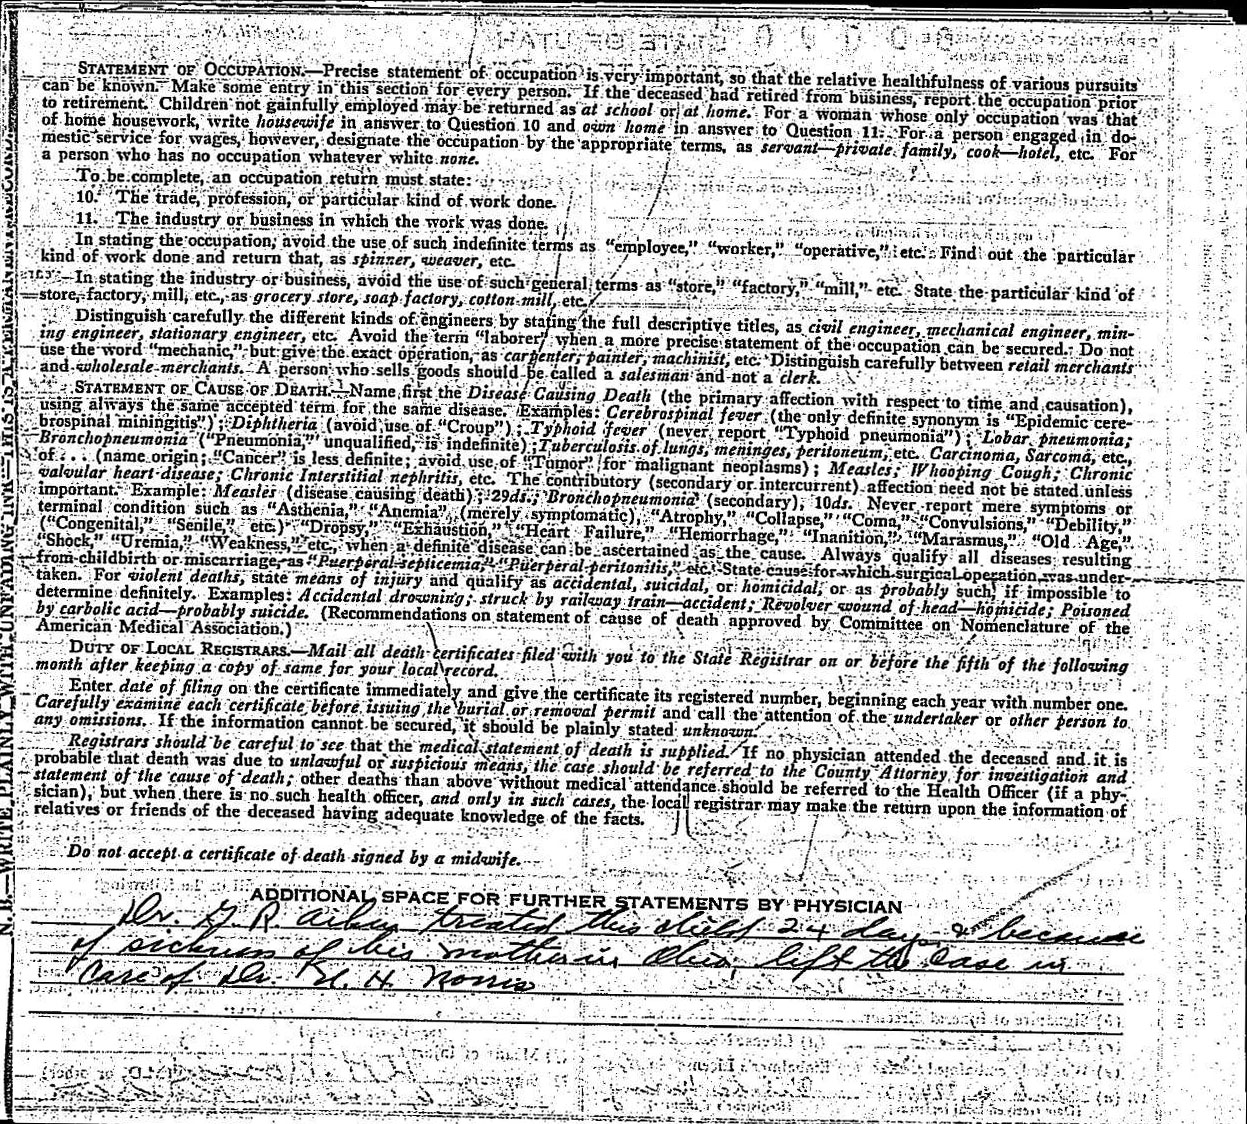 STATEMENT OF OCCUPATION.—Precise statement of occupation is very important, so that the relative healthfulness of various pursuits
can be known. Make some entry in this section for every person. If the deceased had retired from business, report the occupation prior
to retirement. Children not gainfully employed may be returned as at school or at home. For a woman whose only occupation was that
of home housework, write housewife in answer to Question 10 and own home in answer to Question 11. For a person engaged in do-
mestic service for wages, however, designate the occupation by the appropriate terms, as servant—private family, cook—hotel, etc. For
a person who has no occupation whatever white none.
To be complete, an occupation return must state:
10. The trade, profession, or particular kind of work done.
11. The industry or business in which the work was done.
In stating the occupation, avoid the use of such indefinite terms as “employee,” “worker,” “operative,” etc. Find out the particular
kind of work done and return that, as spinner, weaver, etc.
In stating the industry or business, avoid the use of such general terms as “store,” “factory,” “mill,” etc. State the particular kind of
store, factory, mill, etc., as grocery store, soap factory, cotton mill, etc.
Distinguish carefully the different kinds of engineers by stating the full descriptive titles, as civil engineer, mechanical engineer, min-
ing engineer, stationary engineer, etc. Avoid the term “laborer” when a more precise statement of the occupation can be secured. Do not
use the word “mechanic,” but give the exact operation, as carpenter, painter, machinist, etc. Distinguish carefully between retail merchants
and wholesale merchants. A person who sells goods should be called a salesman and not a clerk.
STATEMENT OF CAUSE OF DEATH.—Name first the Disease Causing Death (the primary affection with respect to time and causation),
using always the same accepted term for the same disease. Examples: Cerebrospinal fever (the only definite synonym is “Epidemic cere-
brospinal miningitis”); Diphtheria (avoid use of “Croup”); Typhoid fever (never report “Typhoid pneumonia”); Lobar pneumonia;
Bronchopneumonia (“Pneumonia,” unqualified, is indefinite); Tuberculosis of lungs, meninges, peritoneum, etc. Carcinoma, Sarcoma, etc.,
of . . . (name origin; “Cancer” is less definite; avoid use of “Tumor” for malignant neoplasms); Measles; Whooping Cough; Chronic
valvular heart disease; Chronic Interstitial nephritis, etc. The contributory (secondary or intercurrent) affection need not be stated unless
important. Example: Measles (disease causing death), 29ds.; Bronchopneumonia (secondary), 10ds. Never report mere symptoms or
terminal condition such as “Asthenia,” “Anemia” (merely symptomatic), “Atrophy,” “Collapse,” “Coma,” “Convulsions,” “Debility,”
(“Congenital,” “Senile,” etc.) “Dropsy,” “Exhaustion,” “Heart Failure,” “Hemorrhage,” “Inanition,” “Marasmus,” “Old Age,”
“Shock,” “Uremia,” “Weakness,” etc., when a definite disease can be ascertained as the cause. Always qualify all diseases resulting
from childbirth or miscarriage, as “Puerperal septicemia,” “Puerperal peritonitis,” etc. State cause for which surgical operation was under-
taken. For violent deaths, state means of injury and qualify as accidental, suicidal, or homicidal, or as probably such, if impossible to
determine definitely. Examples: Accidental drowning; struck by railway train—accident; Revolver wound of head—homicide; Poisoned
by carbolic acid—probably suicide. (Recommendations on statement of cause of death approved by Committee on Nomenclature of the
American Medical Association.)
DUTY OF LOCAL REGISTRARS.—Mail all death certificates filed with you to the State Registrar on or before the fifth of the following
month after keeping a copy of same for your local record.
Enter date of filing on the certificate immediately and give the certificate its registered number, beginning each year with number one.
Carefully examine each certificate before issuing the burial or removal permit and call the attention of the undertaker or other person to
any omissions. If the information cannot be secured, it should be plainly stated unknown.
Registrars should be careful to see that the medical statement of death is supplied. If no physician attended the deceased and it is
probable that death was due to unlawful or suspicious means, the case should be referred to the County Attorney for investigation and
statement of the cause of death; other deaths than above without medical attendance should be referred to the Health Officer (if a phy-
sician), but when there is no such health officer, and only in such cases, the local registrar may make the return upon the information of
relatives or friends of the deceased having adequate knowledge of the facts.
Do not accept a certificate of death signed by a midwife.
ADDITIONAL SPACE FOR FURTHER STATEMENTS BY PHYSICIAN
Dr. G. R. treated this child 24 days & because
of sickness of his mother in Ohio, left the case in
care of Dr. H. Norris
N. B.—WRITE PLAINLY WITH UNFADING INK—THIS IS A PERMANENT RECORD